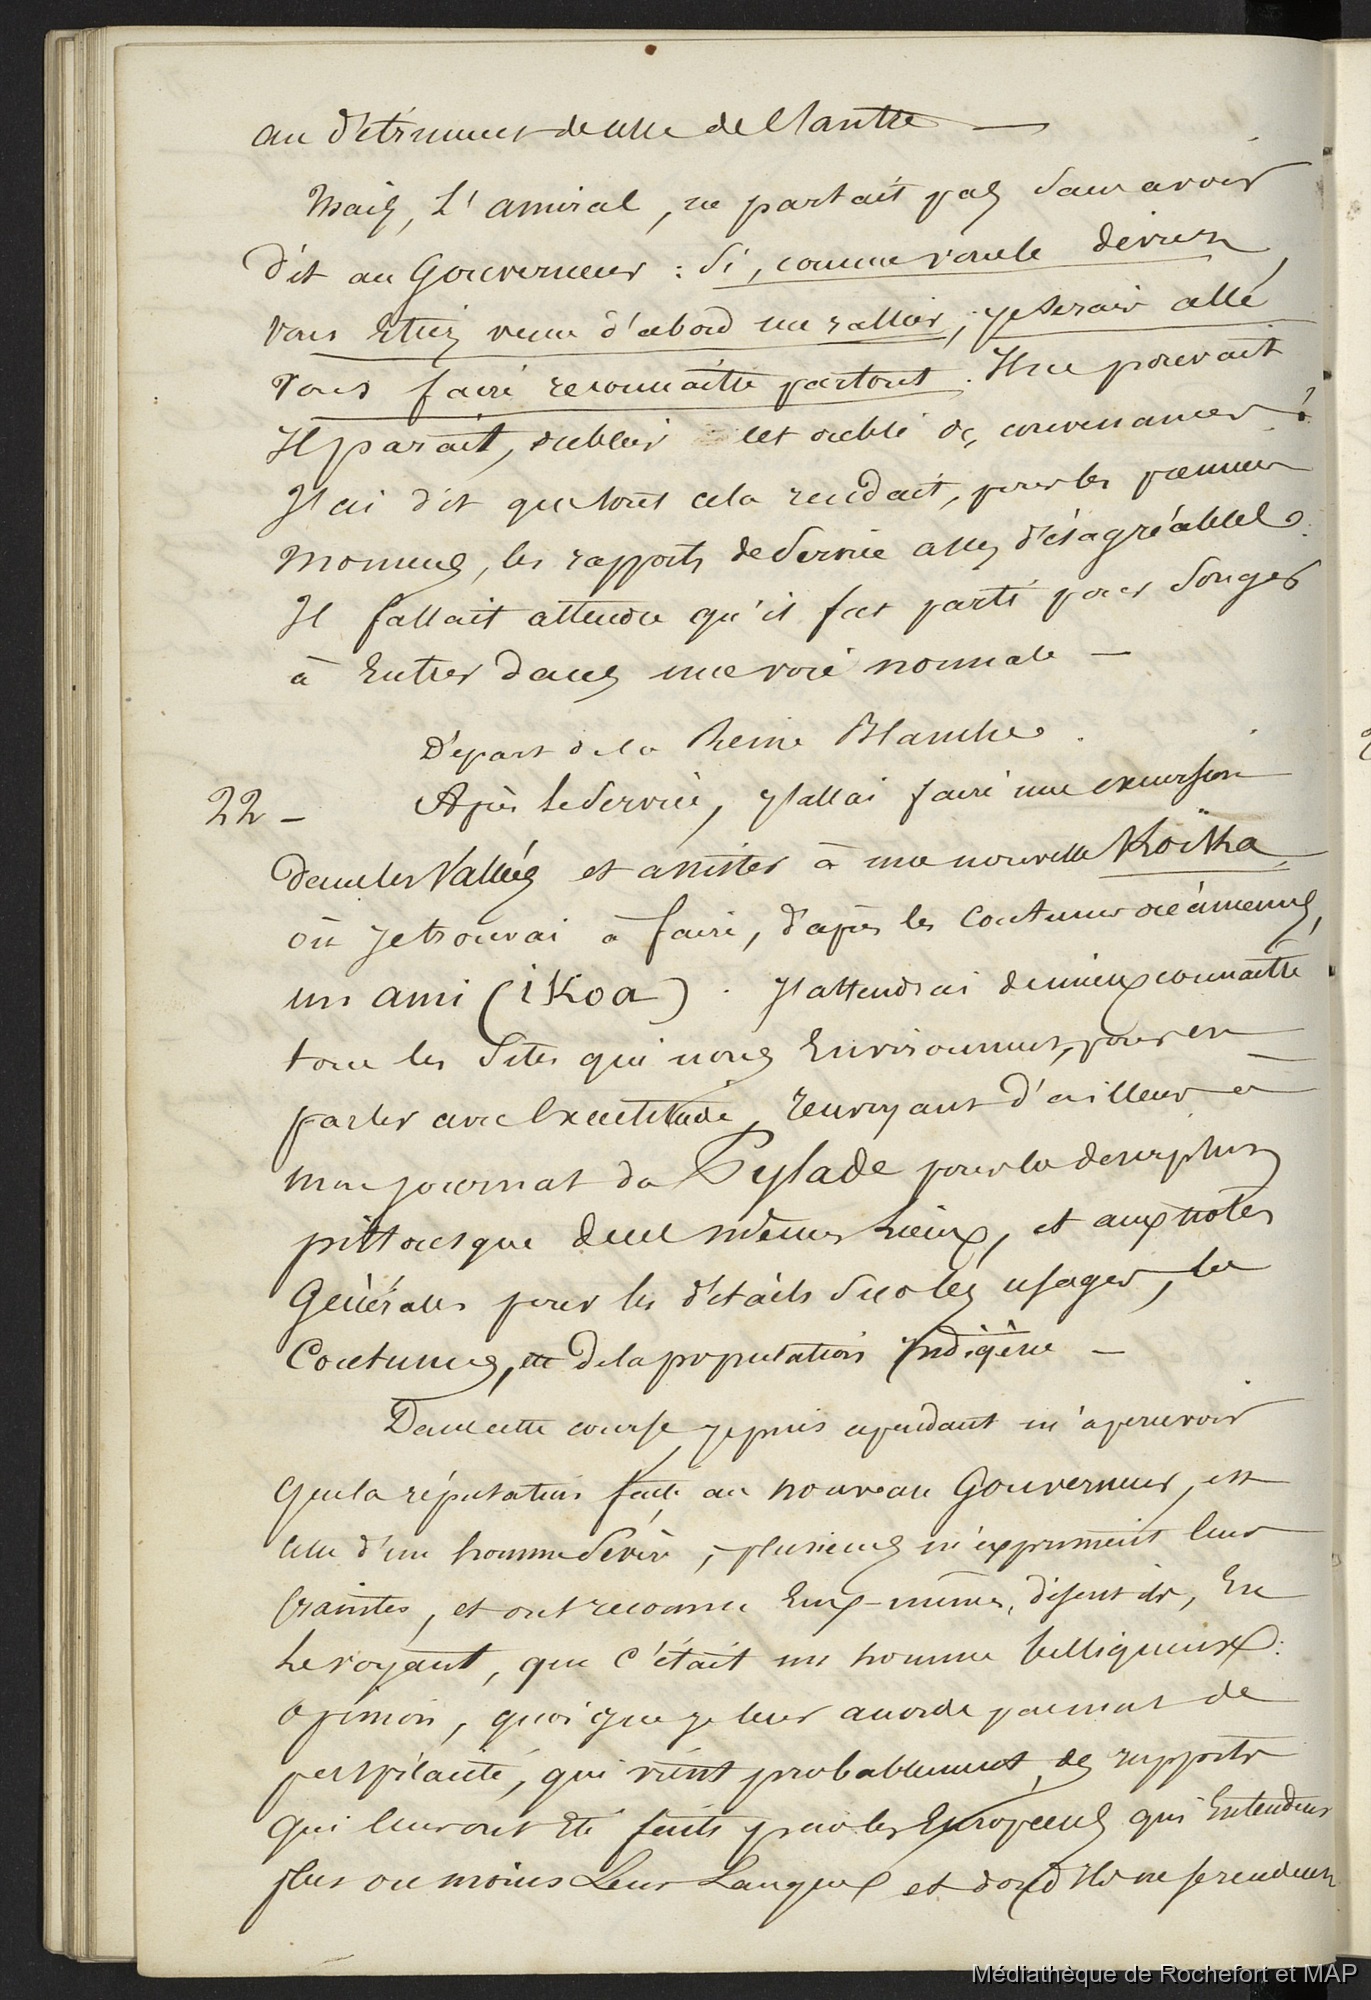 au détriment de celle de l'autre —
Mais, l'amiral, ne partait pas sans avoir
dit au Gouverneur : Si, comme vous le deviez,
vous étiez venu d'abord me rallier, je serais allé
vous faire reconnaître partout. Il ne pouvait
Il parait, oublier cet oubli des convenances.
J'ai dit que tout cela rendait, pour les premiers
moments, les rapports de service assez désagréables.
Il fallait attendre qu'il fut parti pour songer
à entrer dans une voie normale —
Départ de la Reine Blanche.
22 — Après le service, j'allai faire une excursion
dans les Vallées et assister à une nouvelle Koïka
où je trouvai à faire, d'après les coutumes océaniennes,
un ami (ikoa). J'attendrai de mieux connaître
tous les sites qui nous environnent, pour en
parler avec exactitude, renvoyant d'ailleurs à
mon journal du Pylade pour la description
pittoresque de ces mêmes lieux, et aux notes
Générales pour les détails sur les usages, les
Coutumes, etc de la population indigène —
Dans cette course je puis cependant m'apercevoir
que la réputation faite au nouveau Gouverneur, est
celle d'un homme sévère, plusieurs m'expriment leurs
craintes, et ont reconnu eux-mêmes, disent-ils, en
le voyant, que c'était un homme belliqueux :
opinion, quoique je leur accorde pas mal de
perspicacité, qui vient probablement des rapports
qui leur ont été faits par les Européens qui entendent
plus ou moins leur Langue et dont ils ne se rendent
Médiathèque de Rochefort et MAP